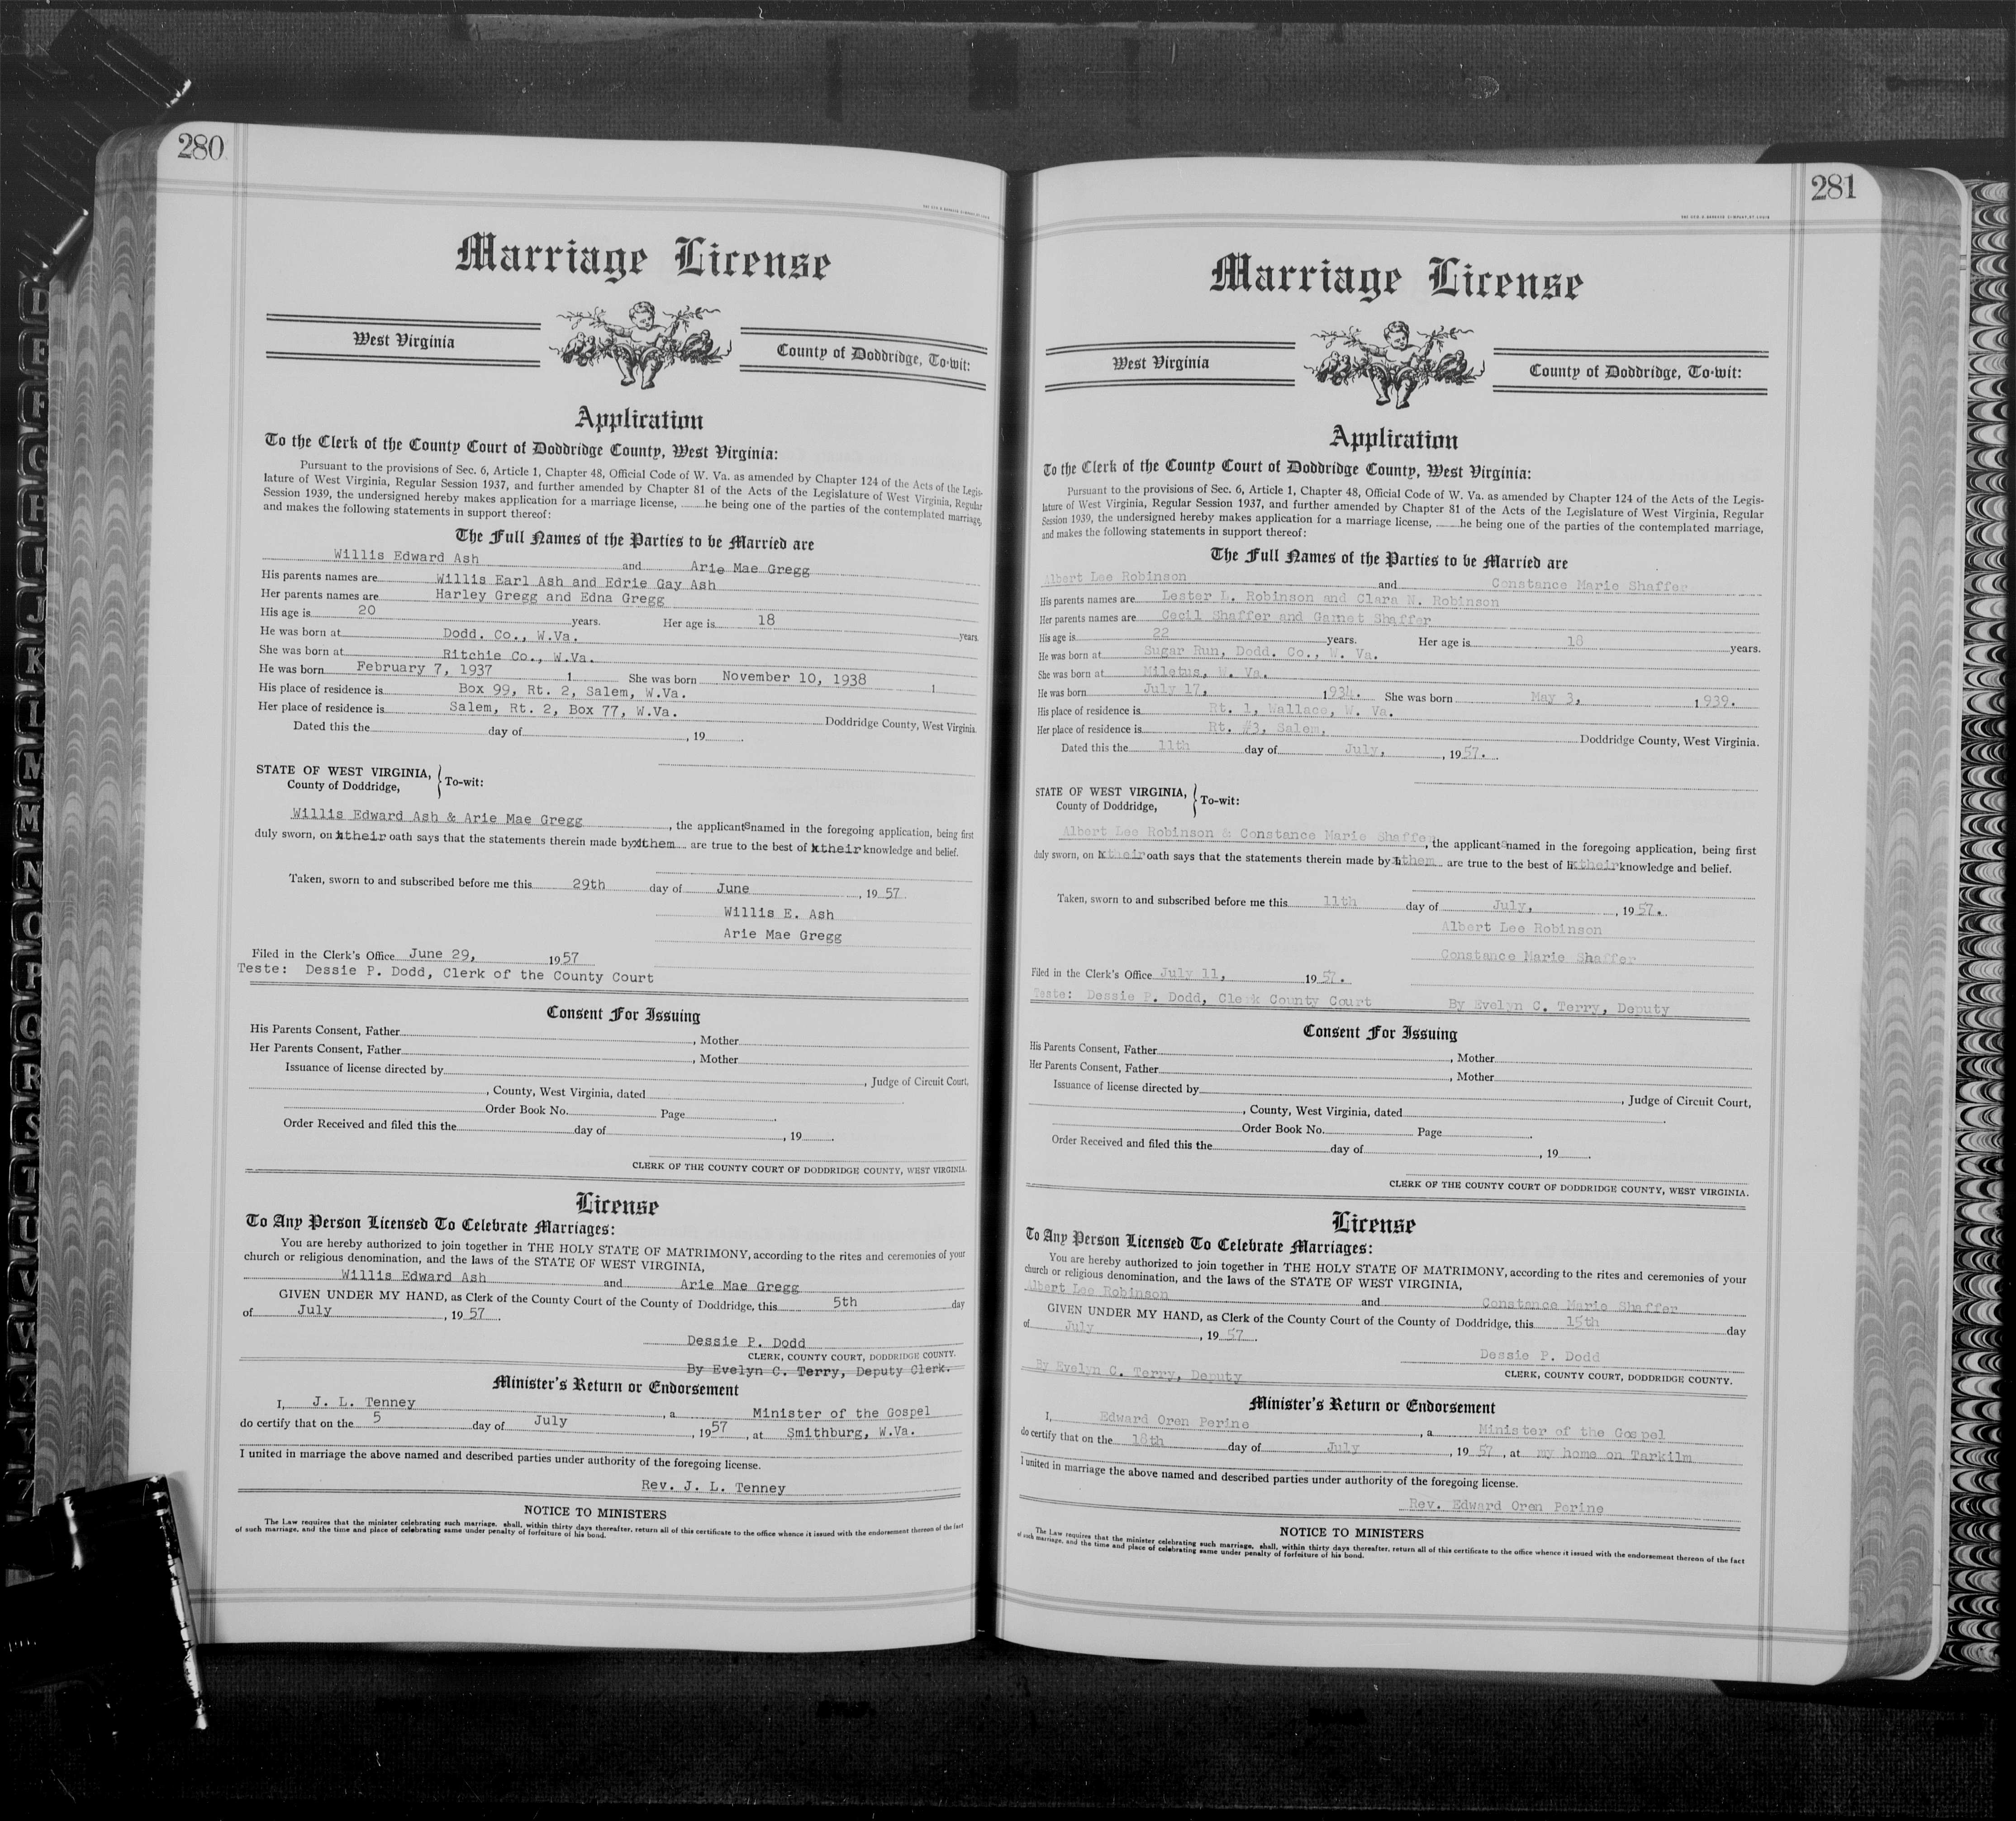 280
Marriage License
West Virginia
County of Doddridge, To-wit:
Application
To the Clerk of the County Court of Doddridge County, West Virginia:
Pursuant to the provisions of Sec. 6, Article 1, Chapter 48, Official Code of W. Va. as amended by Chapter 124 of the Acts of the Legis-
lature of West Virginia, Regular Session 1937, and further amended by Chapter 81 of the Acts of the Legislature of West Virginia, Regular
Session 1939, the undersigned hereby makes application for a marriage license, ........he being one of the parties of the contemplated marriage,
and makes the following statements in support thereof:
The Full Names of the Parties to be Married are
Willis Edward Ash and Arie Mae Gregg
His parents names are Willis Earl Ash and Edrie Gay Ash
Her parents names are Harley Gregg and Edna Gregg
His age is 20 years. Her age is 18 years
He was born at Dodd. Co., W.Va.
She was born at Ritchie Co., W.Va.
He was born February 7, 1937 1 She was born November 10, 1938 1
His place of residence is Box 99, Rt. 2, Salem, W.Va.
Her place of residence is Salem, Rt. 2, Box 77, W.Va. Doddridge County, West Virginia.
Dated this the day of , 19 .
STATE OF WEST VIRGINIA,
County of Doddridge, To-wit:
Willis Edward Ash & Arie Mae Gregg , the applicants named in the foregoing application, being first
duly sworn, on their oath says that the statements therein made by them are true to the best of their knowledge and belief.
Taken, sworn to and subscribed before me this 29th day of June , 19 57
Willis E. Ash
Arie Mae Gregg
Filed in the Clerk's Office June 29, 1957
Teste: Dessie P. Dodd, Clerk of the County Court
Consent For Issuing
His Parents Consent, Father , Mother
Her Parents Consent, Father , Mother
Issuance of license directed by , Judge of Circuit Court,
, County, West Virginia, dated
Order Book No. Page .
Order Received and filed this the day of , 19 .
CLERK OF THE COUNTY COURT OF DODDRIDGE COUNTY, WEST VIRGINIA.
License
To Any Person Licensed To Celebrate Marriages:
You are hereby authorized to join together in THE HOLY STATE OF MATRIMONY, according to the rites and ceremonies of your
church or religious denomination, and the laws of the STATE OF WEST VIRGINIA,
Willis Edward Ash and Arie Mae Gregg
GIVEN UNDER MY HAND, as Clerk of the County Court of the County of Doddridge, this 5th day
of July , 19 57 .
Dessie P. Dodd
CLERK, COUNTY COURT, DODDRIDGE COUNTY.
By Evelyn C. Terry, Deputy Clerk.
Minister's Return or Endorsement
I, J. L. Tenney , a Minister of the Gospel
do certify that on the 5 day of July , 1957 , at Smithburg, W.Va.
I united in marriage the above named and described parties under authority of the foregoing license.
Rev. J. L. Tenney
NOTICE TO MINISTERS
The Law requires that the minister celebrating such marriage, shall, within thirty days thereafter, return all of this certificate to the office whence it issued with the endorsement thereon of the fact
of such marriage, and the time and place of celebrating same under penalty of forfeiture of his bond.
281
Marriage License
West Virginia
County of Doddridge, To-wit:
Application
To the Clerk of the County Court of Doddridge County, West Virginia:
Pursuant to the provisions of Sec. 6, Article 1, Chapter 48, Official Code of W. Va. as amended by Chapter 124 of the Acts of the Legis-
lature of West Virginia, Regular Session 1937, and further amended by Chapter 81 of the Acts of the Legislature of West Virginia, Regular
Session 1939, the undersigned hereby makes application for a marriage license, ........he being one of the parties of the contemplated marriage,
and makes the following statements in support thereof:
The Full Names of the Parties to be Married are
Albert Lee Robinson and Constance Marie Shaffer
His parents names are Lester L. Robinson and Clara N. Robinson
Her parents names are Cecil Shaffer and Garnet Shaffer
His age is 22 years. Her age is 18 years.
He was born at Sugar Run, Dodd. Co., W. Va.
She was born at Miletus, W. Va.
He was born July 17, 1934. She was born May 3, 1939.
His place of residence is Rt. 1, Wallace, W. Va.
Her place of residence is Rt. #3, Salem, Doddridge County, West Virginia.
Dated this the 11th day of July, , 1957.
STATE OF WEST VIRGINIA,
County of Doddridge, To-wit:
Albert Lee Robinson & Constance Marie Shaffer, the applicants named in the foregoing application, being first
duly sworn, on their oath says that the statements therein made by them are true to the best of their knowledge and belief.
Taken, sworn to and subscribed before me this 11th day of July, , 1957.
Albert Lee Robinson
Constance Marie Shaffer
Filed in the Clerk's Office July 11, 1957.
Teste: Dessie P. Dodd, Clerk County Court By Evelyn C. Terry, Deputy
Consent For Issuing
His Parents Consent, Father , Mother
Her Parents Consent, Father , Mother
Issuance of license directed by , Judge of Circuit Court,
, County, West Virginia, dated .
Order Book No. Page .
Order Received and filed this the day of , 19 .
CLERK OF THE COUNTY COURT OF DODDRIDGE COUNTY, WEST VIRGINIA.
License
To Any Person Licensed To Celebrate Marriages:
You are hereby authorized to join together in THE HOLY STATE OF MATRIMONY, according to the rites and ceremonies of your
church or religious denomination, and the laws of the STATE OF WEST VIRGINIA,
Albert Lee Robinson and Constance Marie Shaffer
GIVEN UNDER MY HAND, as Clerk of the County Court of the County of Doddridge, this 15th day
of July , 19 57 .
Dessie P. Dodd
By Evelyn C. Terry, Deputy CLERK, COUNTY COURT, DODDRIDGE COUNTY.
Minister's Return or Endorsement
I, Edward Oren Perine , a Minister of the Gospel
do certify that on the 18th day of July , 19 57 , at my home on Tarkilm
I united in marriage the above named and described parties under authority of the foregoing license.
Rev. Edward Oren Perine
NOTICE TO MINISTERS
The Law requires that the minister celebrating such marriage, shall, within thirty days thereafter, return all of this certificate to the office whence it issued with the endorsement thereon of the fact
of such marriage, and the time and place of celebrating same under penalty of forfeiture of his bond.